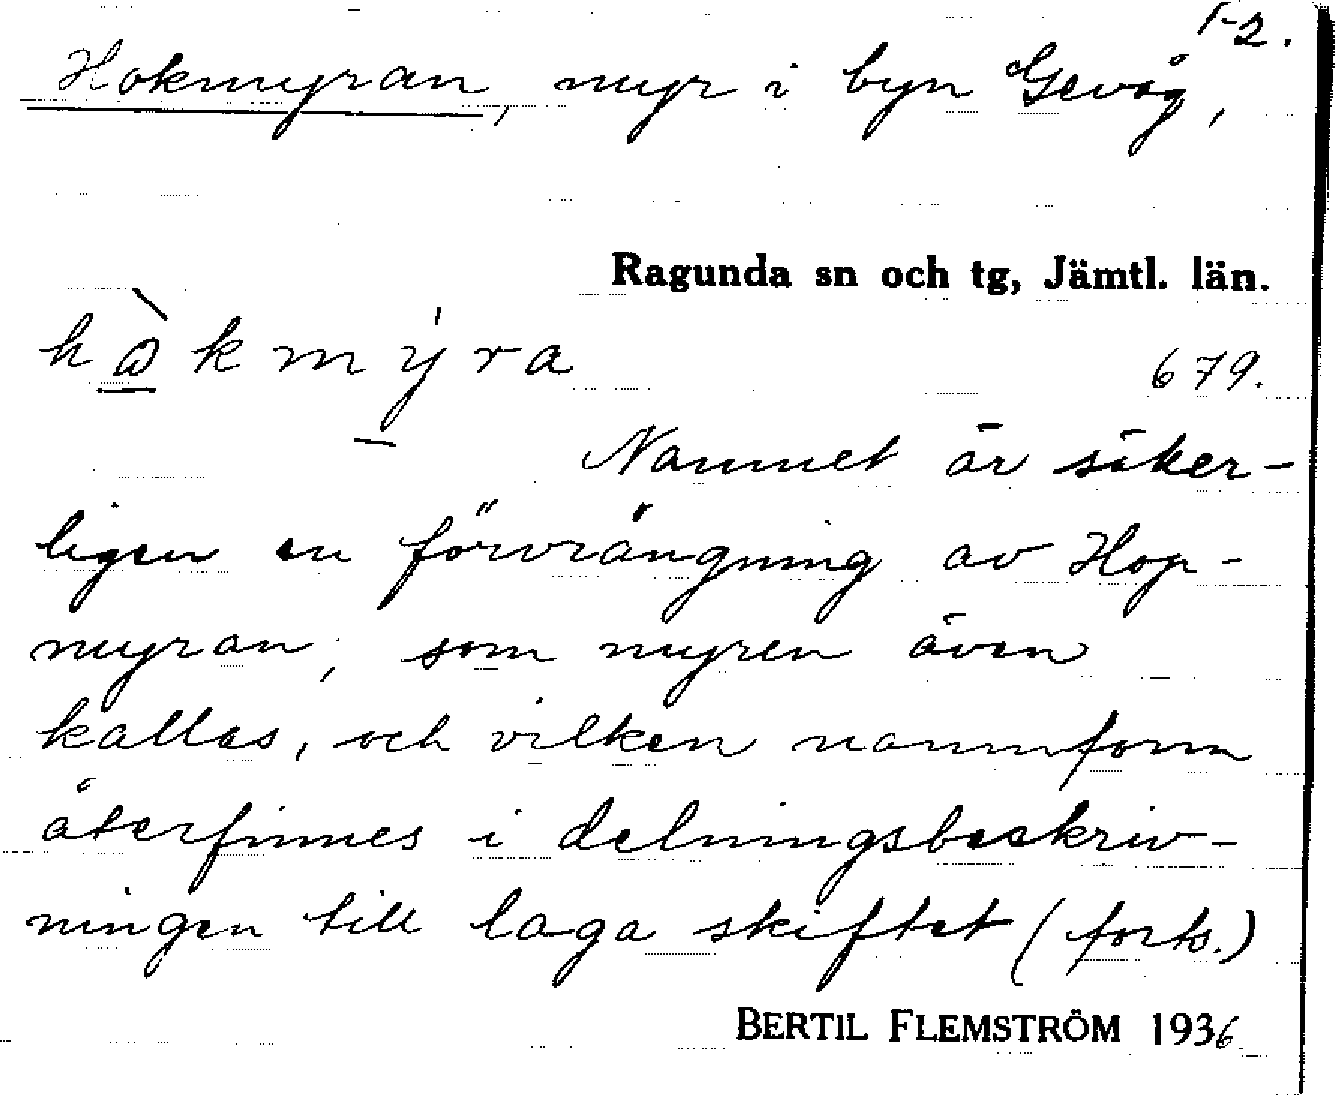 1-2.
Hokmyran, myr i byn Gevåg,
Ragunda sn och tg, Jämtl. län.
679.
Namnet är säker-
ligen en förvrängning av Hop-
myran, som myren även
kallas, och vilken namnform
återfinnes i delningsbeskriv-
ningen till laga skiftet (forts.)
BERTIL FLEMSTRÖM 1936